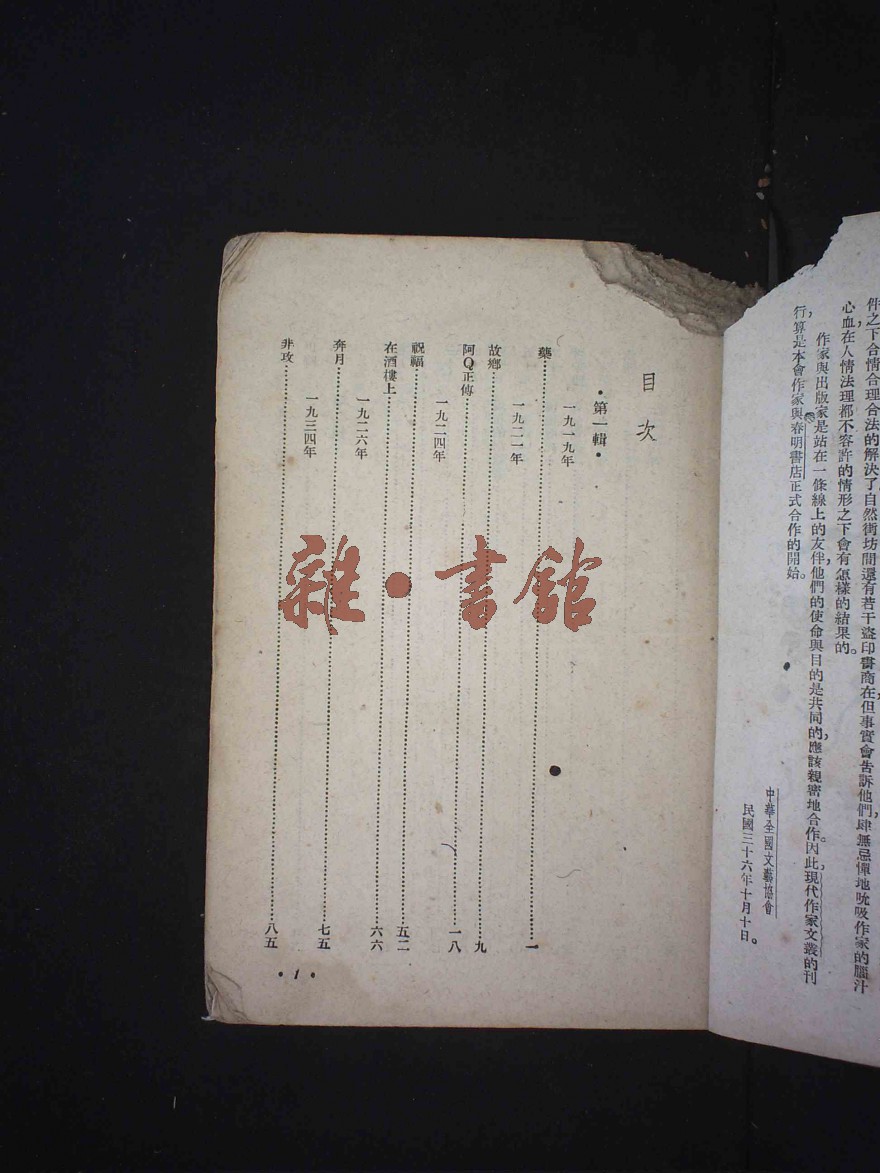 件之下合情合理合法的解決了自然街坊間還有若干盜印書商在但事實會告訴他們，肆無忌憚地吮吸作家的腦汁
心血，在人情法理都不容許的情形之下會有怎樣的結果的。
作家與出版家是站在一條線上的友伴，他們的使命與目的是共同的，應該親密地合作。因此，現代作家文叢的刊
行，算是本會作家與春明書店正式合作的開始。
中華全國文藝協會
民國三十六年十月十日。
目次
•第一輯•
一九一九年
藥……一
一九二一年
故鄉……九
阿Q正傳……一八
一九二四年
祝福……五二
在酒樓上……六六
一九二六年
奔月……七五
一九三四年
非攻……八五
•1•
雜•書館